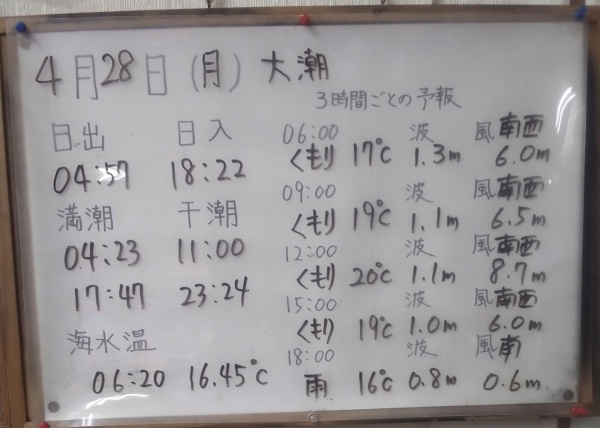 4月28日(月) 大潮
3時間ごとの予報
日出 日入
04:57 18:22
満潮 干潮
04:23 11:00
17:47 23:24
海水温
06:20 16.45℃
06:00 波 風南西
くもり 17℃ 1.3m 6.0m
09:00 波 風南西
くもり 19℃ 1.1m 6.5m
12:00 波 風南西
くもり 20℃ 1.1m 8.7m
15:00 波 風南西
くもり 19℃ 1.0m 6.0m
18:00 波 風南
雨 16℃ 0.8m 0.6m